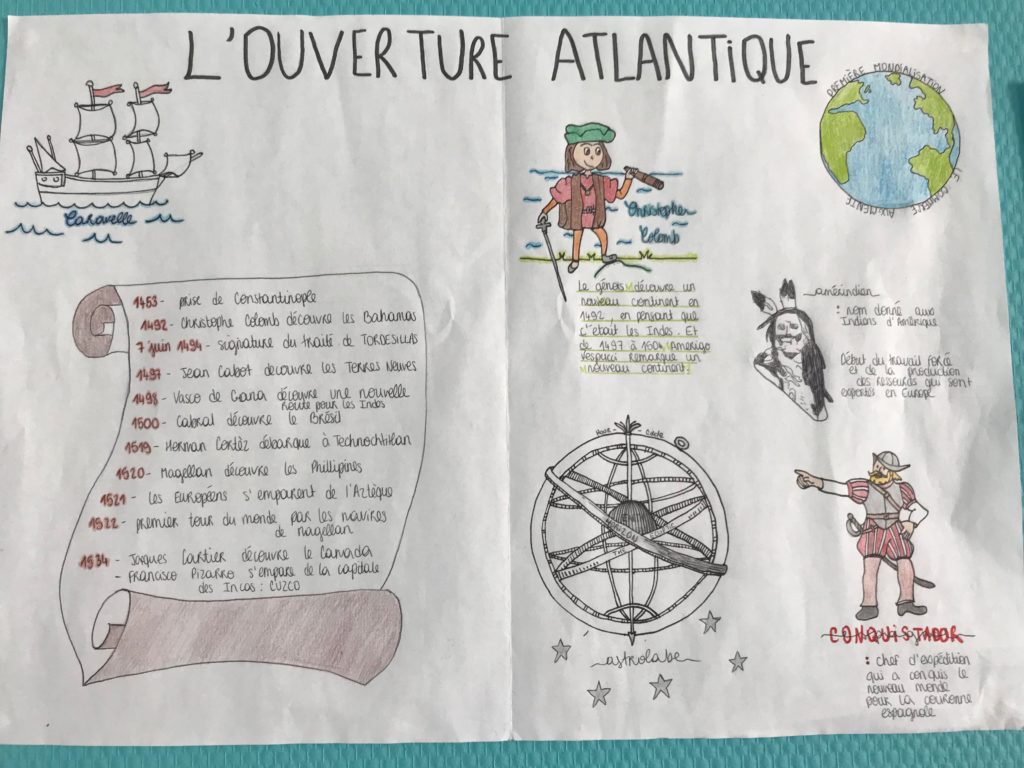 L'OUVERTURE ATLANTIQUE
PREMIÈRE MONDIALISATION
LE COMMERCE
AUGMENTE
Caravelle
Christopher
Colomb
Le génois découvre un
nouveau continent en
1492, en pensant que
c'était les Indes. Et
de 1497 à 1504, Amerigo
Vespucci remarque un
nouveau continent.
amérindien
: nom donné aux
Indiens d'Amérique
Début du travail forcé
et de la production
des ressourds qui sont
exportés en Europe
1453 - prise de Constantinople
1492 - Christophe Colomb découvre les Bahamas
7 juin 1494 - signature du traité de TORDESILLAS
1497 - Jean Cabot découvre les Terres Neuves
1498 - Vasco de Gama découvre une nouvelle
route pour les Indes
1500 - Cabral découvre le Brésil
1519 - Hernan Cortèz débarque à Technochtitlan
1520 - Magellan découvre les Phillipines
1521 - Les Européens s'emparent de l'Aztèque
1522 - premier tour du monde par les navires
de Magellan
1534 - Jacques Cartier découvre le Canada
- Francisco Pizarro s'empare de la capitale
des Incas : CUZCO
Hour Circle
astrolabe
CONQUISTADOR
: chef d'expédition
qui a conquis le
nouveau monde
pour la couronne
espagnole